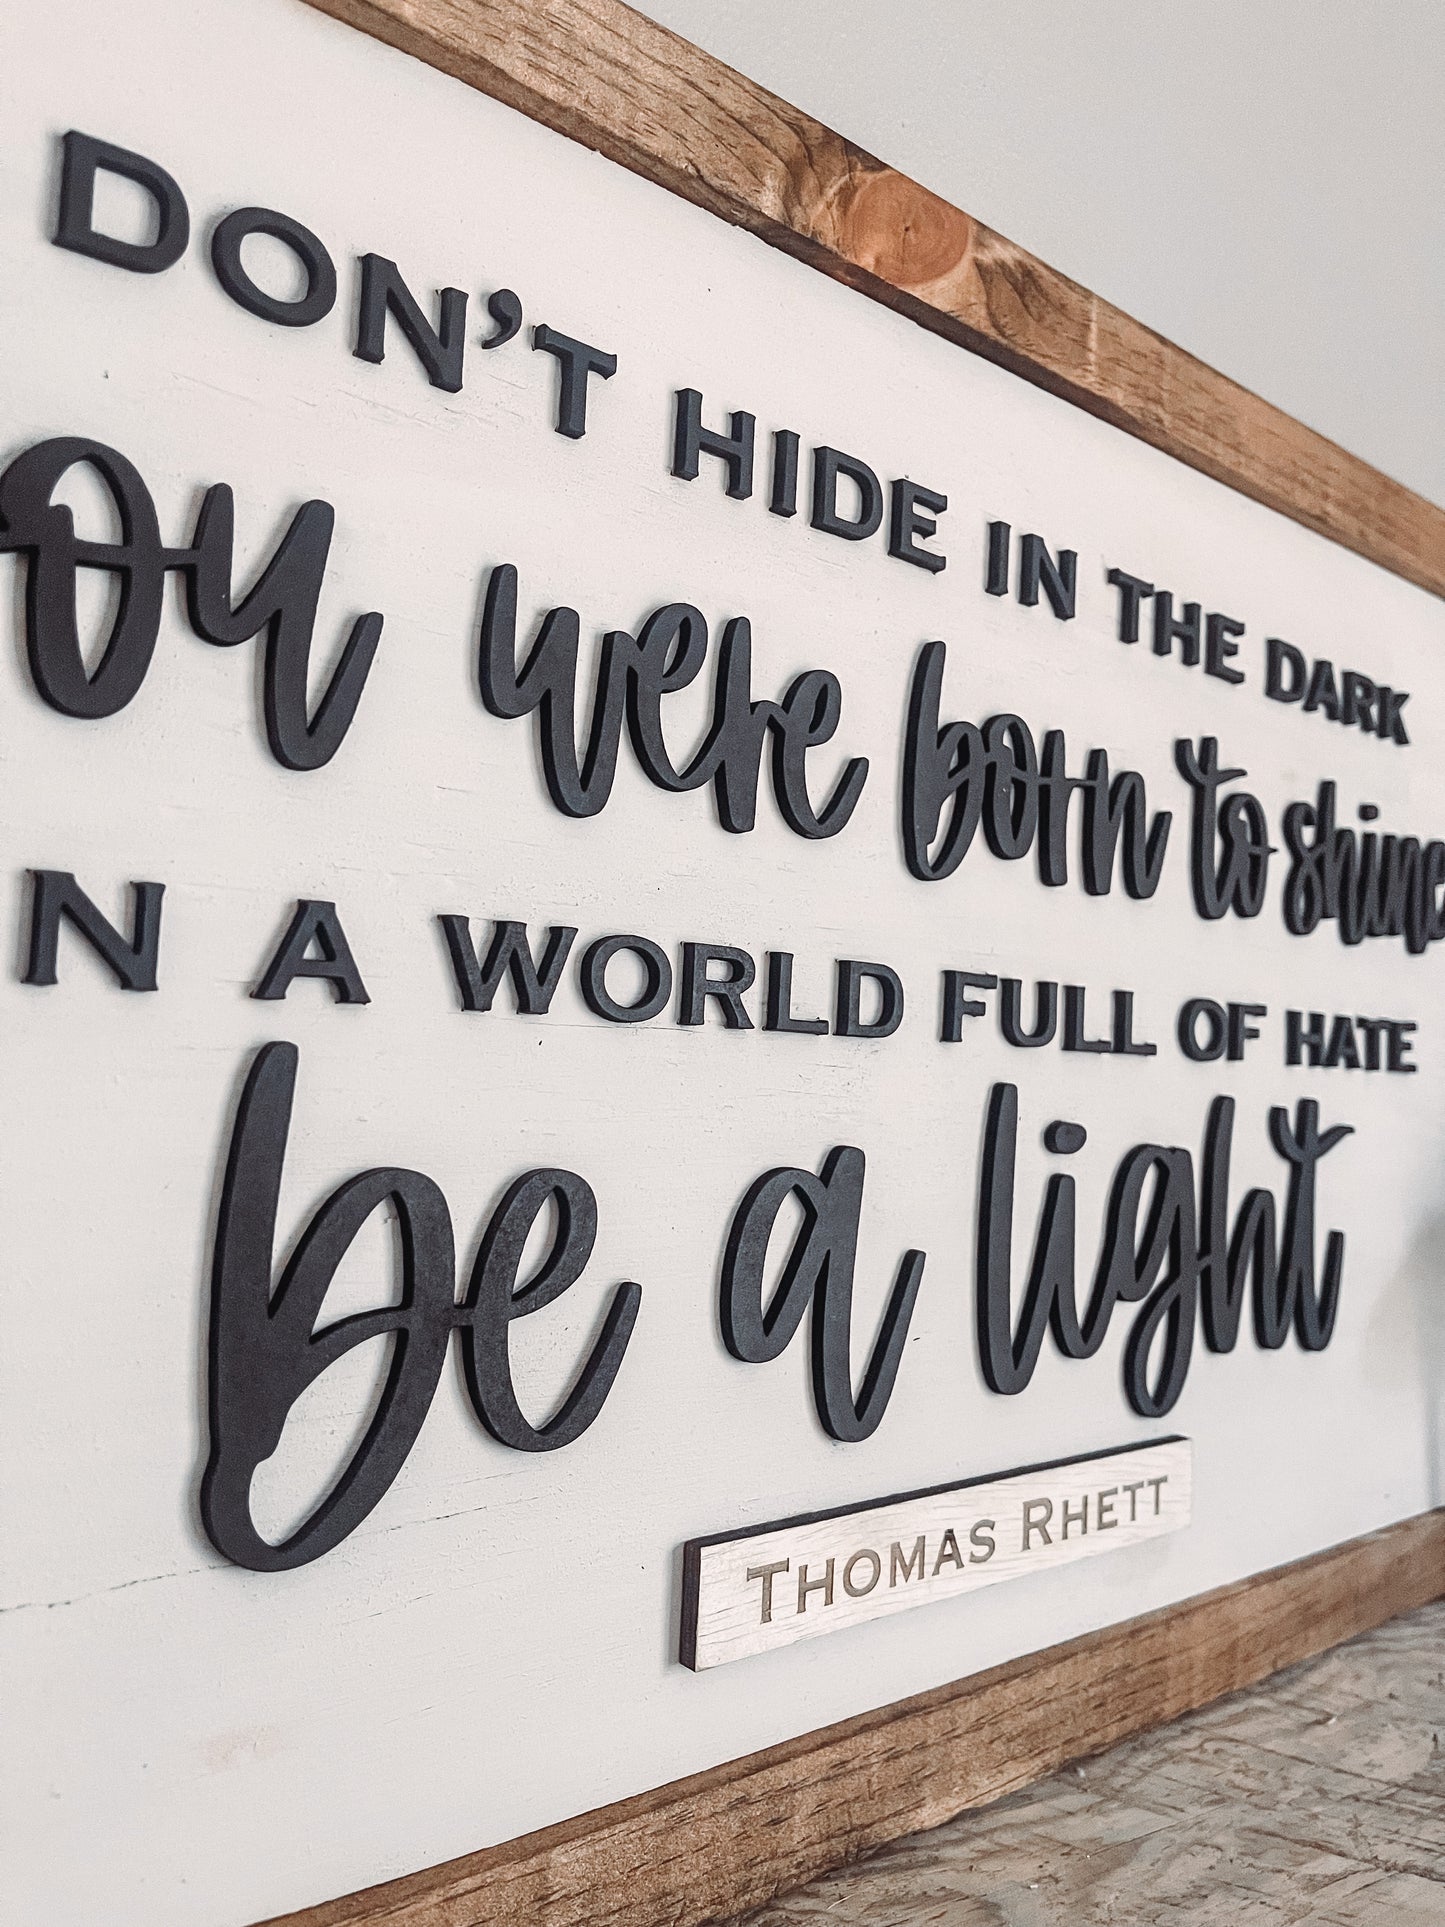 DON'T HIDE IN THE DARK
ou were born to shine
N A WORLD FULL OF HATE
be a light
THOMAS RHETT